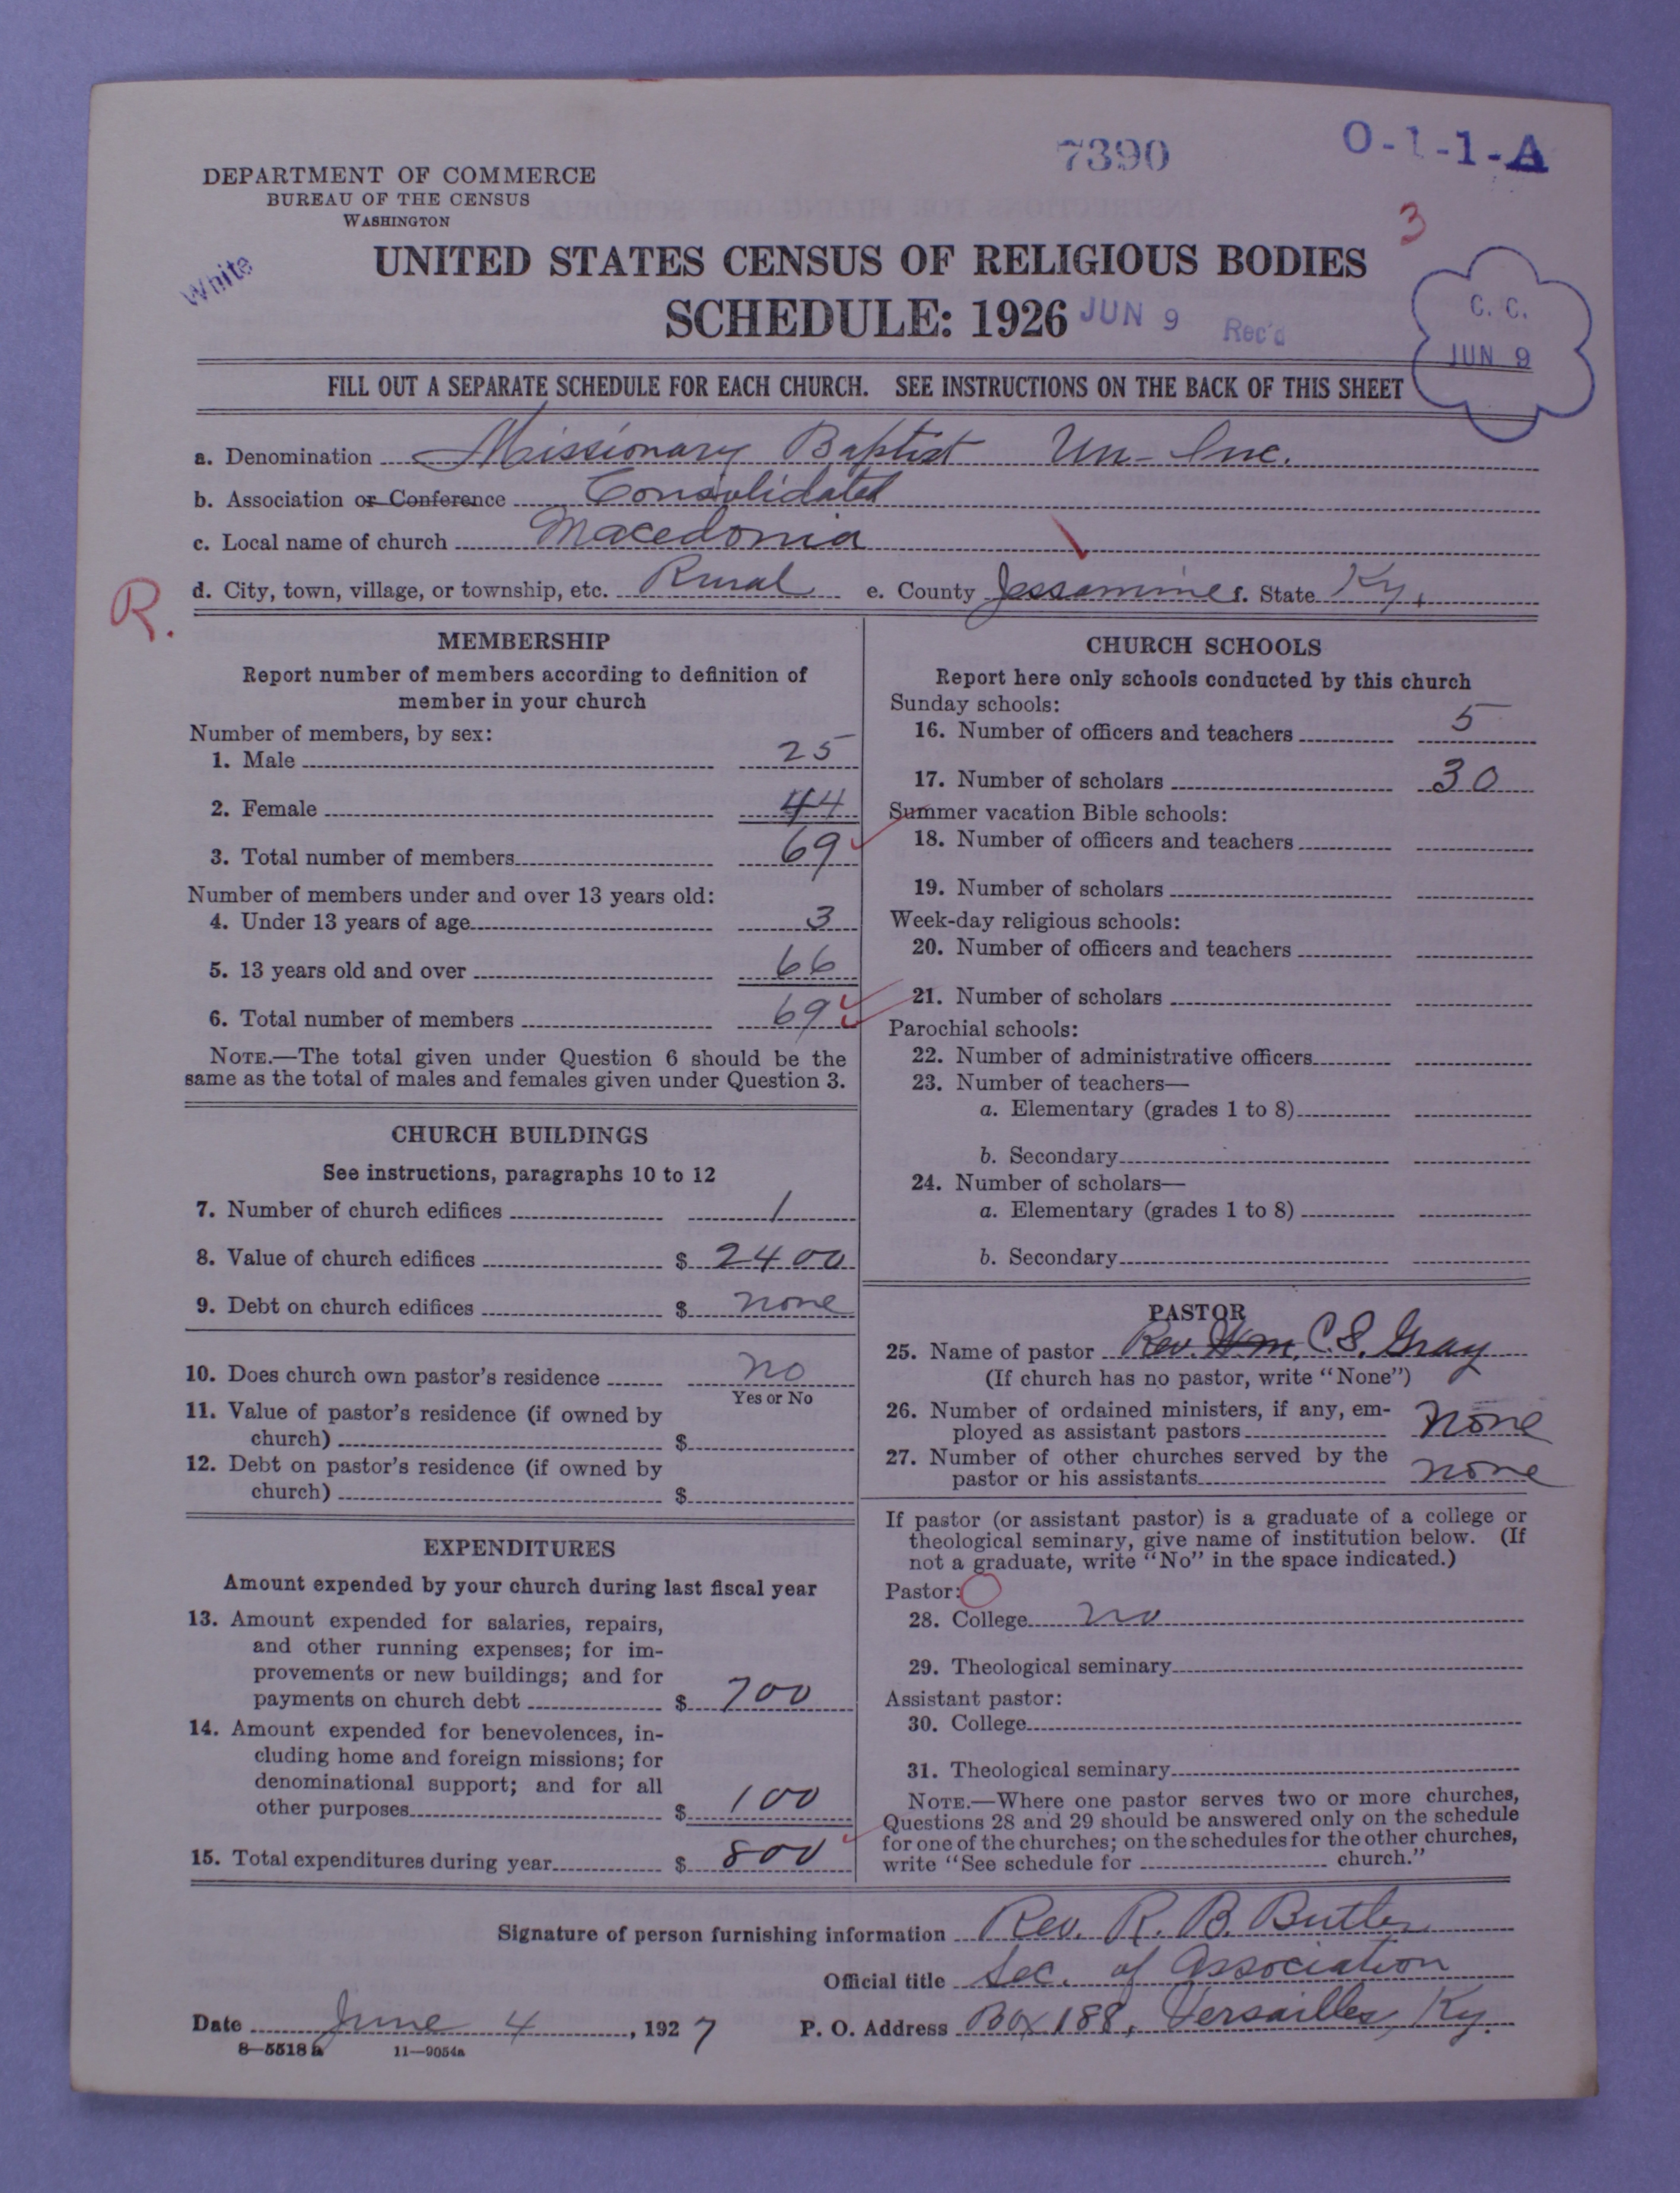 7390
O-1-1-A
DEPARTMENT OF COMMERCE
BUREAU OF THE CENSUS
WASHINGTON
3
White
UNITED STATES CENSUS OF RELIGIOUS BODIES
SCHEDULE: 1926
JUN 9 Rec'd
C. C.
JUN 9
FILL OUT A SEPARATE SCHEDULE FOR EACH CHURCH. SEE INSTRUCTIONS ON THE BACK OF THIS SHEET
a. Denomination Missionary Baptist Un-Inc.
b. Association or Conference Consolidated
c. Local name of church Macedonia
R.
d. City, town, village, or township, etc. Rural e. County Jessamine f. State Ky.
MEMBERSHIP
Report number of members according to definition of
member in your church
Number of members, by sex:
1. Male 25
2. Female 44
3. Total number of members 69
Number of members under and over 13 years old:
4. Under 13 years of age 3
5. 13 years old and over 66
6. Total number of members 69
NOTE.—The total given under Question 6 should be the
same as the total of males and females given under Question 3.
CHURCH BUILDINGS
See instructions, paragraphs 10 to 12
7. Number of church edifices 1
8. Value of church edifices $ 2400
9. Debt on church edifices $ none
10. Does church own pastor's residence no
Yes or No
11. Value of pastor's residence (if owned by
church) $
12. Debt on pastor's residence (if owned by
church) $
EXPENDITURES
Amount expended by your church during last fiscal year
13. Amount expended for salaries, repairs,
and other running expenses; for im-
provements or new buildings; and for
payments on church debt $ 700
14. Amount expended for benevolences, in-
cluding home and foreign missions; for
denominational support; and for all
other purposes $ 100
15. Total expenditures during year $ 800
CHURCH SCHOOLS
Report here only schools conducted by this church
Sunday schools:
16. Number of officers and teachers 5
17. Number of scholars 30
Summer vacation Bible schools:
18. Number of officers and teachers
19. Number of scholars
Week-day religious schools:
20. Number of officers and teachers
21. Number of scholars
Parochial schools:
22. Number of administrative officers
23. Number of teachers—
a. Elementary (grades 1 to 8)
b. Secondary
24. Number of scholars—
a. Elementary (grades 1 to 8)
b. Secondary
PASTOR
25. Name of pastor Rev. Wm. C. S. Gray
(If church has no pastor, write "None")
26. Number of ordained ministers, if any, em-
ployed as assistant pastors None
27. Number of other churches served by the
pastor or his assistants none
If pastor (or assistant pastor) is a graduate of a college or
theological seminary, give name of institution below. (If
not a graduate, write "No" in the space indicated.)
Pastor:
28. College no
29. Theological seminary
Assistant pastor:
30. College
31. Theological seminary
NOTE.—Where one pastor serves two or more churches,
Questions 28 and 29 should be answered only on the schedule
for one of the churches; on the schedules for the other churches,
write "See schedule for church."
Signature of person furnishing information Rev. R. B. Butler
Official title Sec. of Association
Date June 4, 1927 P. O. Address Box 188, Versailles, Ky.
8—5518a 11—9054a